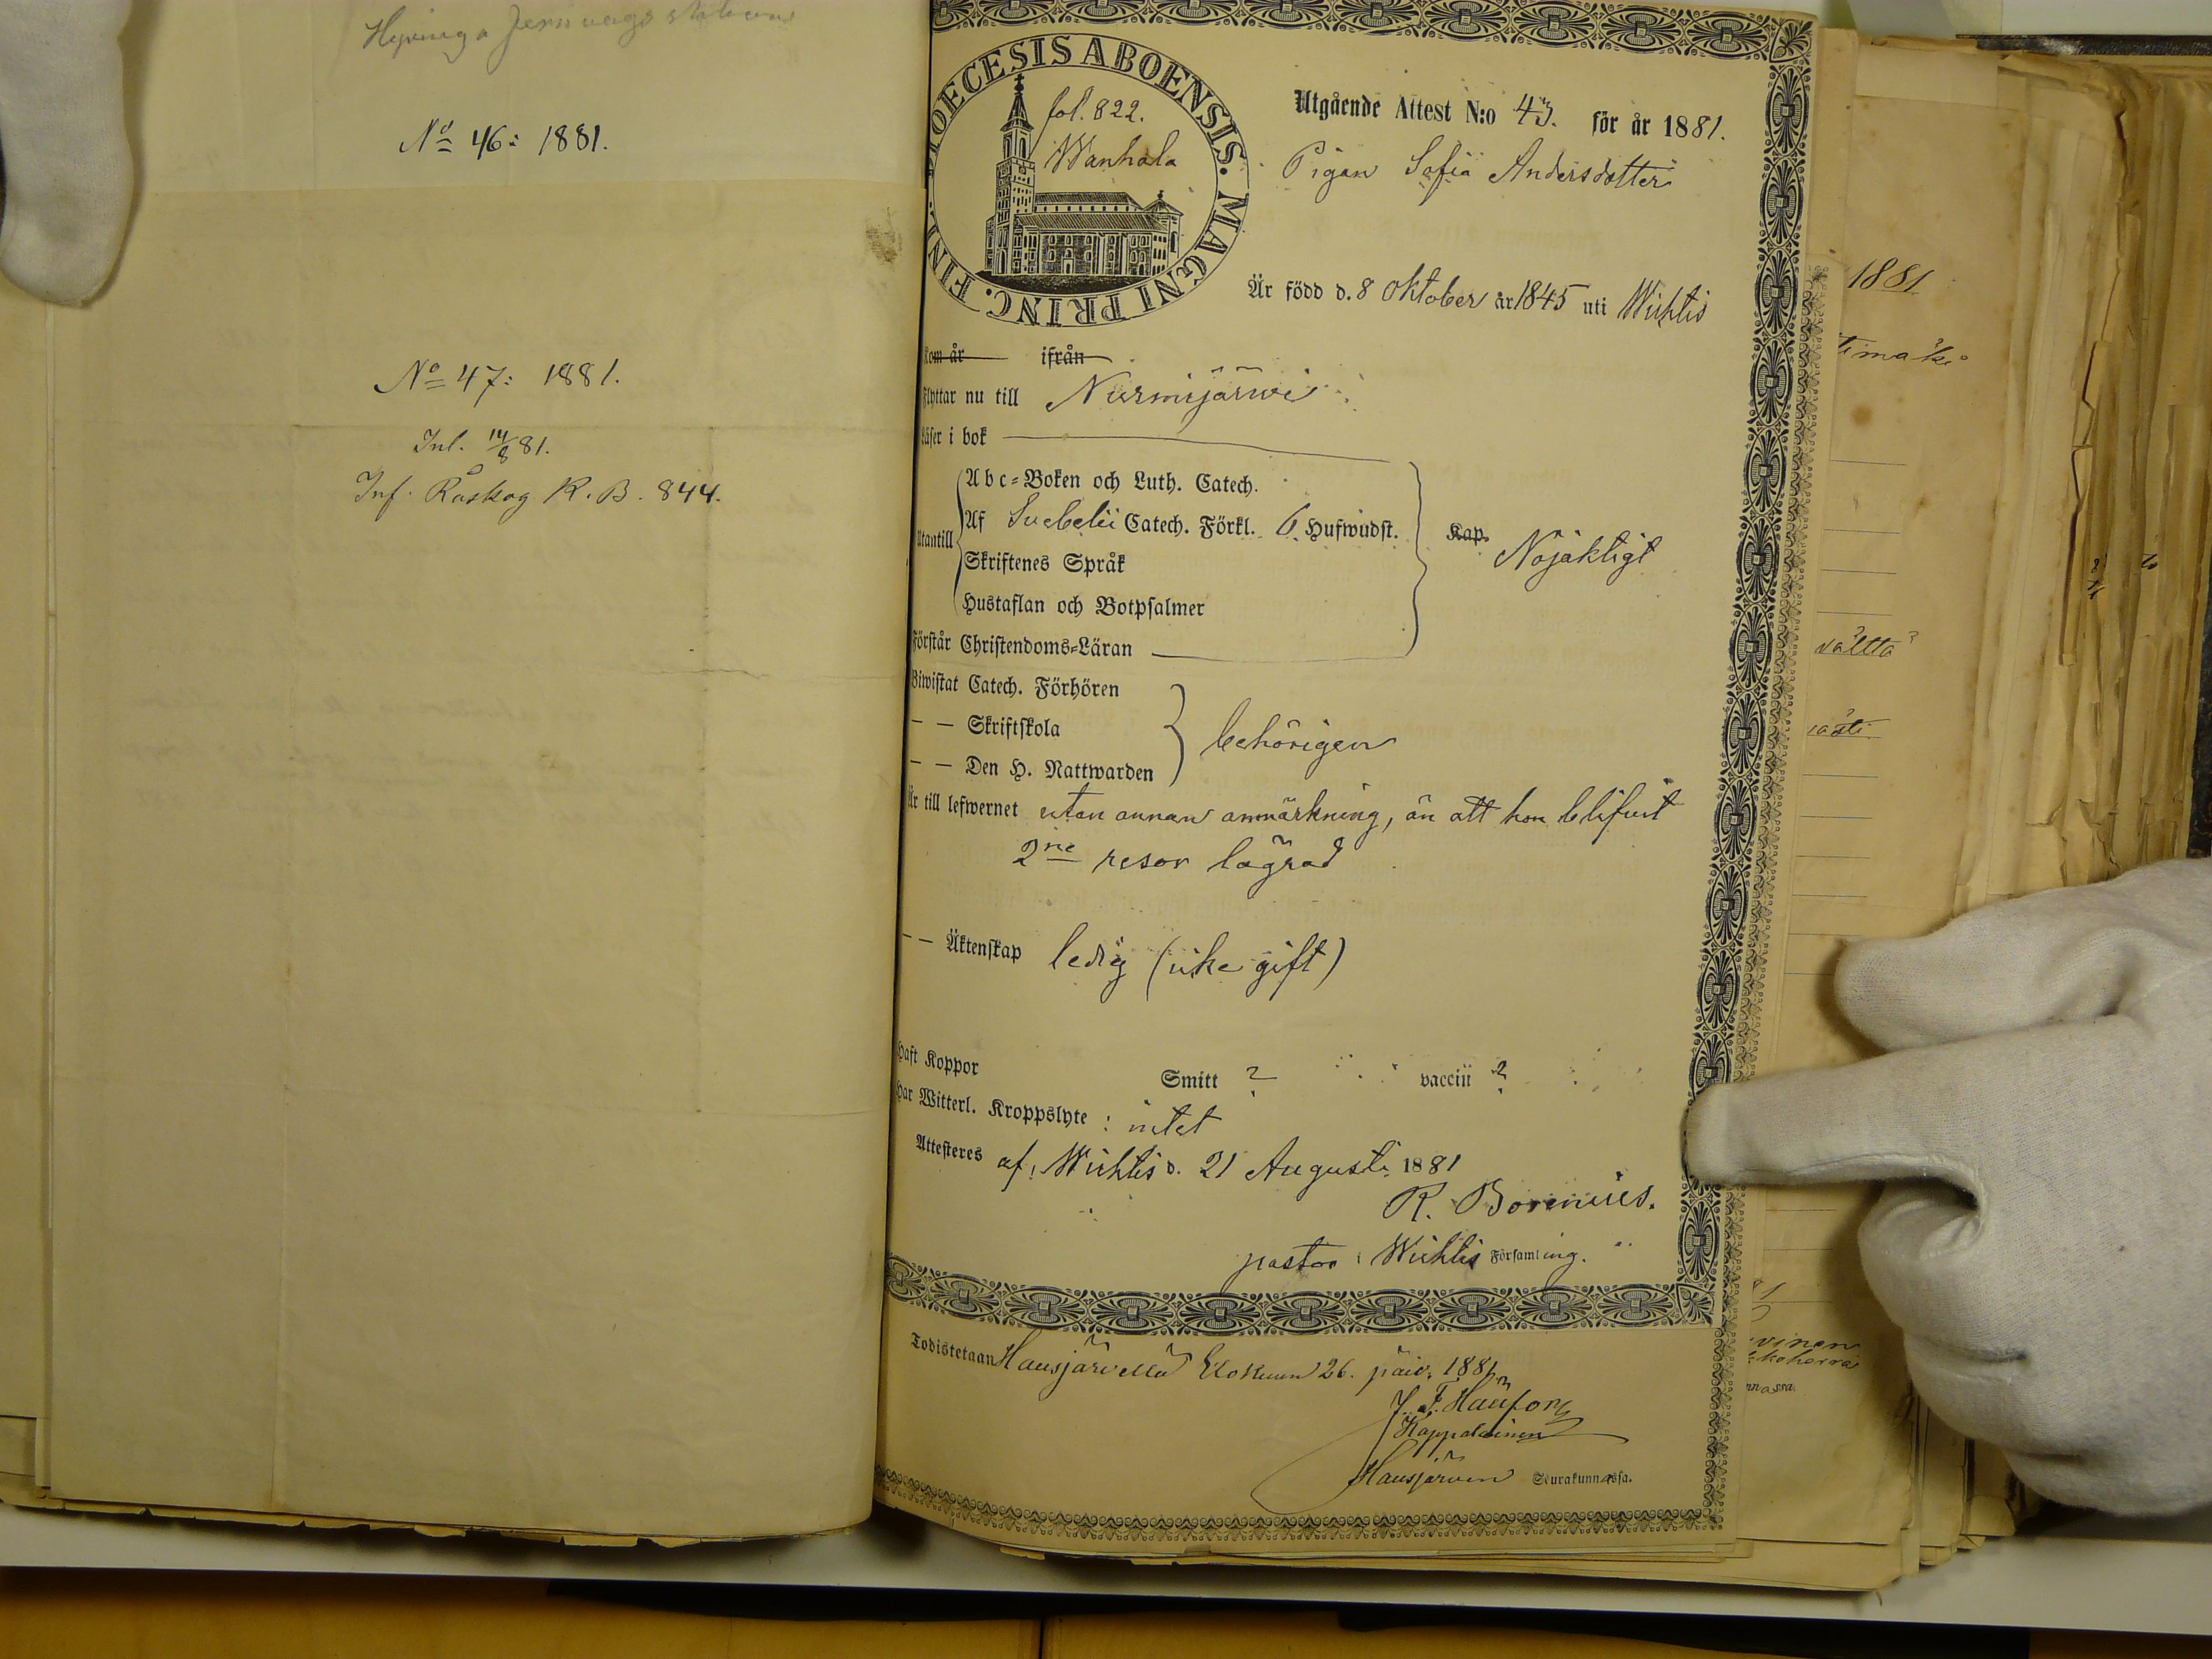 Hyvinga Jernvägs station
No 46: 1881.
No 47: 1881.
Inl. 14/8 81.
Inf. Råskog K. B. 844.
DIOECESIS ABOENSIS. MAGNI PRINC. FINL.
fol. 822.
Wanhala
Utgående Attest N:o 43. för år 1881.
Pigan Sofia Andersdotter
Är född d. 8 Oktober år 1845 uti Wichtis
Kom år ifrån
Flyttar nu till Nurmijärwi
Läser i bok
Utantill
Abc-Boken och Luth. Catech.
Af Svebelii Catech. Förkl. 6 Hufwudst.
Kap. Nöjaktigt
Skriftenes Språk
Hustaflan och Botpsalmer
Förstår Christendoms-Läran
Biwistat Catech. Förhören
— — Skriftskola
behörigen
— — Den H. Nattwarden
Är till lefwernet utan annan anmärkning, än att hon blifvit
2ne resor lägrad
— — Äktenskap ledig (icke gift)
Haft Koppor Smitt ? vaccin ?
Har Witterl. Kroppslyte : intet
Attesteres af, Wichtis d. 21 Augusti 1881
R. Borenius.
pastor i Wichtis Församling.
Todistetaan Hausjärvellä Elokuun 26. päiv. 1881
Kappalainen
Hausjärven Seurakunnassa.
1881